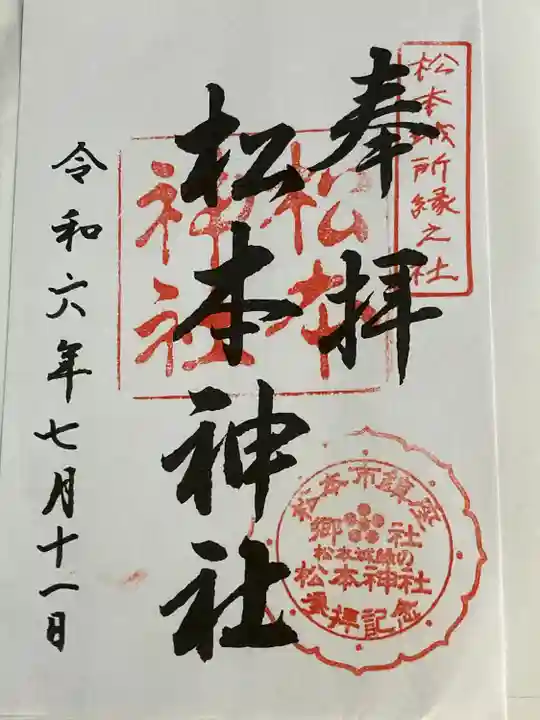 松本城所縁之社
奉拝
松本
神社
松本神社
令和六年七月十一日
松本市鎮座
郷 社
松本城鎮の
松本神社
参拝記念